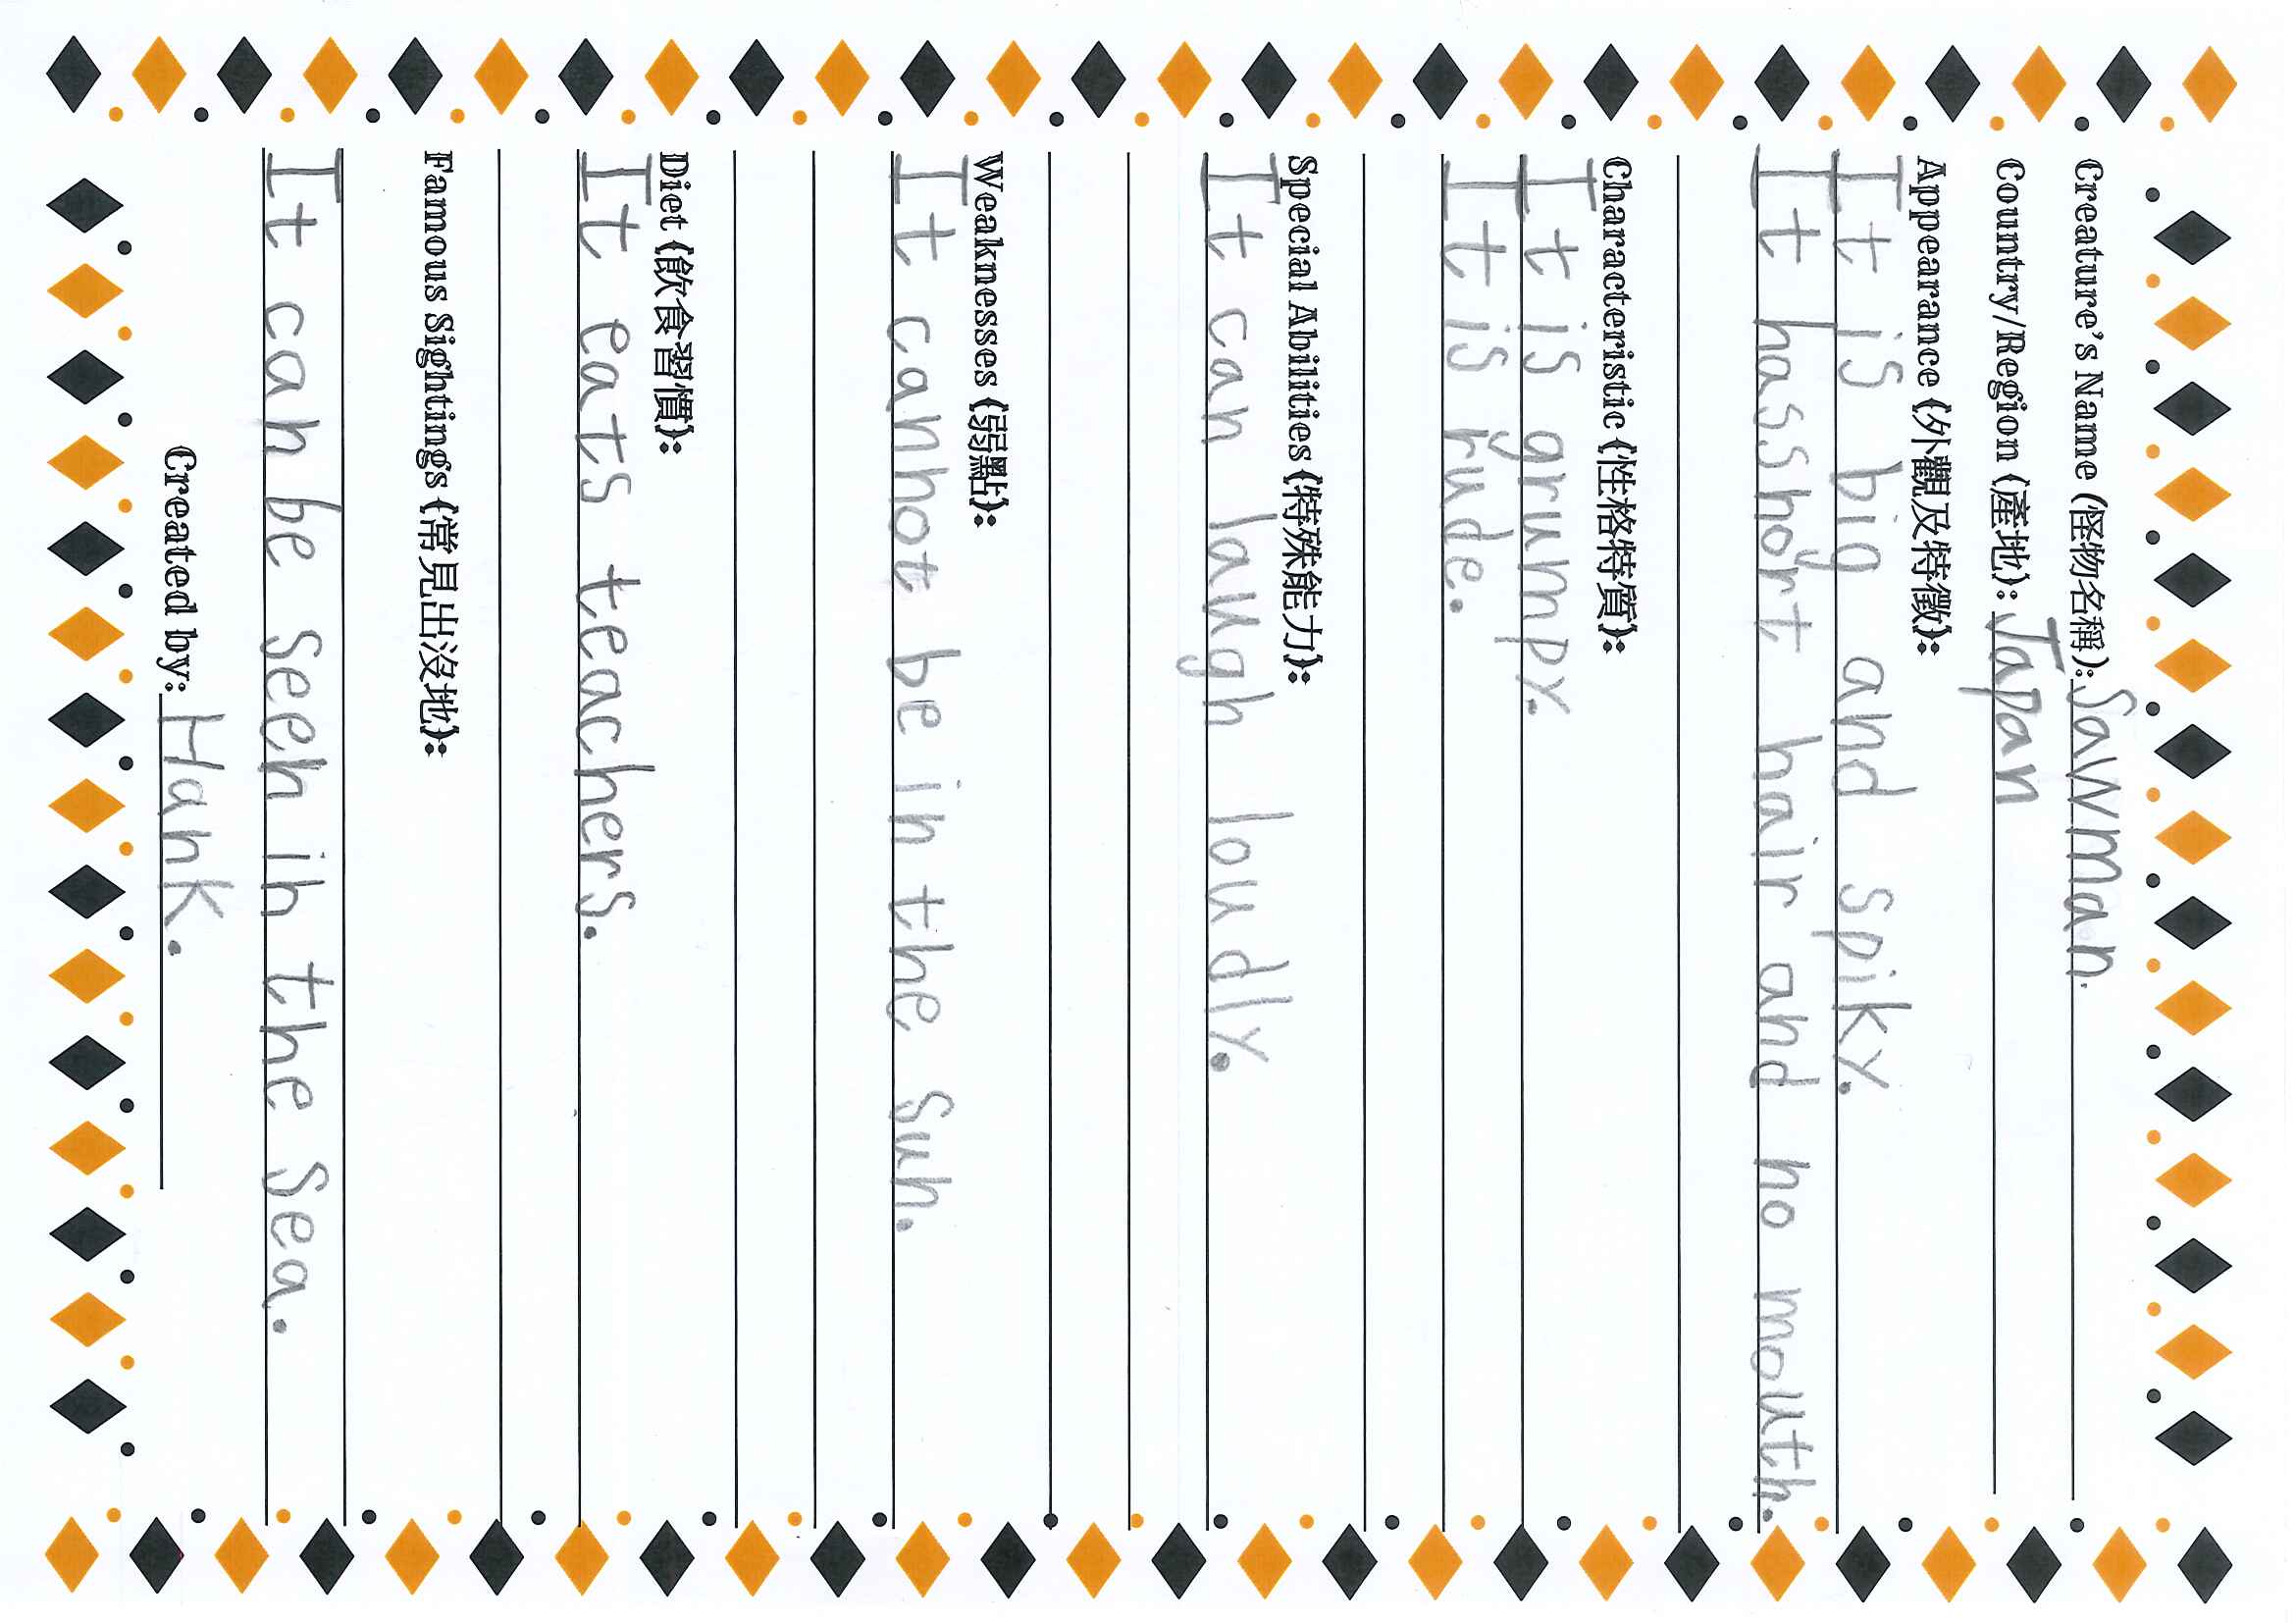 Creature's Name (怪物名稱): Sawman.
Country/Region (產地): Japan
Appearance (外觀及特徵):
It is big and spiky.
It has short hair and no mouth.
Characteristic (性格特質):
It is grumpy.
It is rude.
Special Abilities (特殊能力):
It can laugh loudly.
Weaknesses (弱點):
It cannot be in the sun.
Diet (飲食習慣):
It eats teachers.
Famous Sightings (常見出沒地):
It can be seen in the sea.
Created by: Hank.